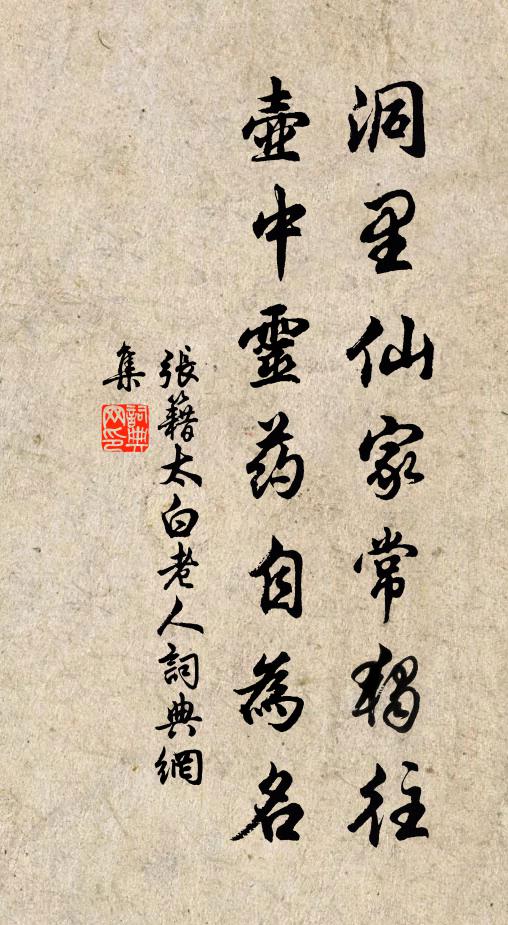 洞里仙家常獨往
壺中靈药自為名
張籍太白老人詞典網
集
詞典網印